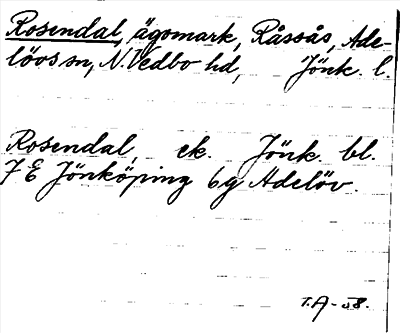 Rosendal, ägomark, Råssås, Ade-
lövs sn, N. Vedbo hd, Jönk. l.
Rosendal, ek. Jönk. bl.
7 E Jönköping 6g Adelöv.
T.A-58.